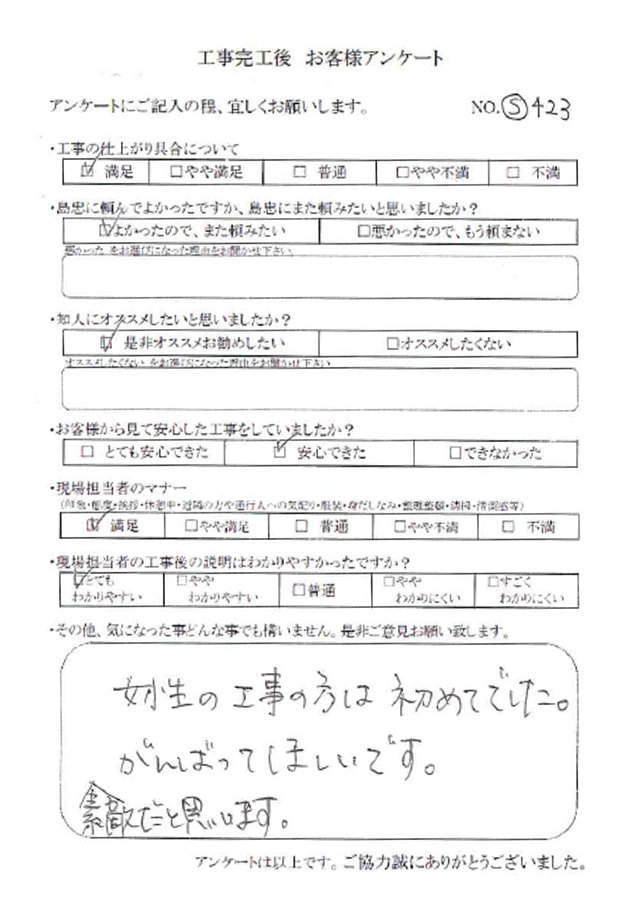 工事完工後 お客様アンケート
アンケートにご記入の程、宜しくお願いします。 NO.Ⓢ423
・工事の仕上がり具合について
☑ 満足 □やや満足 □ 普通 □やや不満 □ 不満
・島忠に頼んでよかったですか、島忠にまた頼みたいと思いましたか？
☑よかったので、また頼みたい □悪かったので、もう頼まない
悪かった をお選びになった理由をお聞かせ下さい。
・知人にオススメしたいと思いましたか？
☑ 是非オススメお勧めしたい □オススメしたくない
オススメしたくない をお選びになった理由をお聞かせ下さい
・お客様から見て安心した工事をしていましたか？
□ とても安心できた ☑ 安心できた □できなかった
・現場担当者のマナー
(印象・態度・挨拶・休憩中・近隣の方や通行人への気配り・服装・身だしなみ・整理整頓・清掃・清潔感等)
☑ 満足 □やや満足 □ 普通 □やや不満 □ 不満
・現場担当者の工事後の説明はわかりやすかったですか？
☑とても わかりやすい □やや わかりやすい □普通 □やや わかりにくい □すごく わかりにくい
・その他、気になった事どんな事でも構いません。是非ご意見お願い致します。
女性の工事の方は初めてでした。
がんばってほしいです。
素敵だと思います。
アンケートは以上です。ご協力誠にありがとうございました。